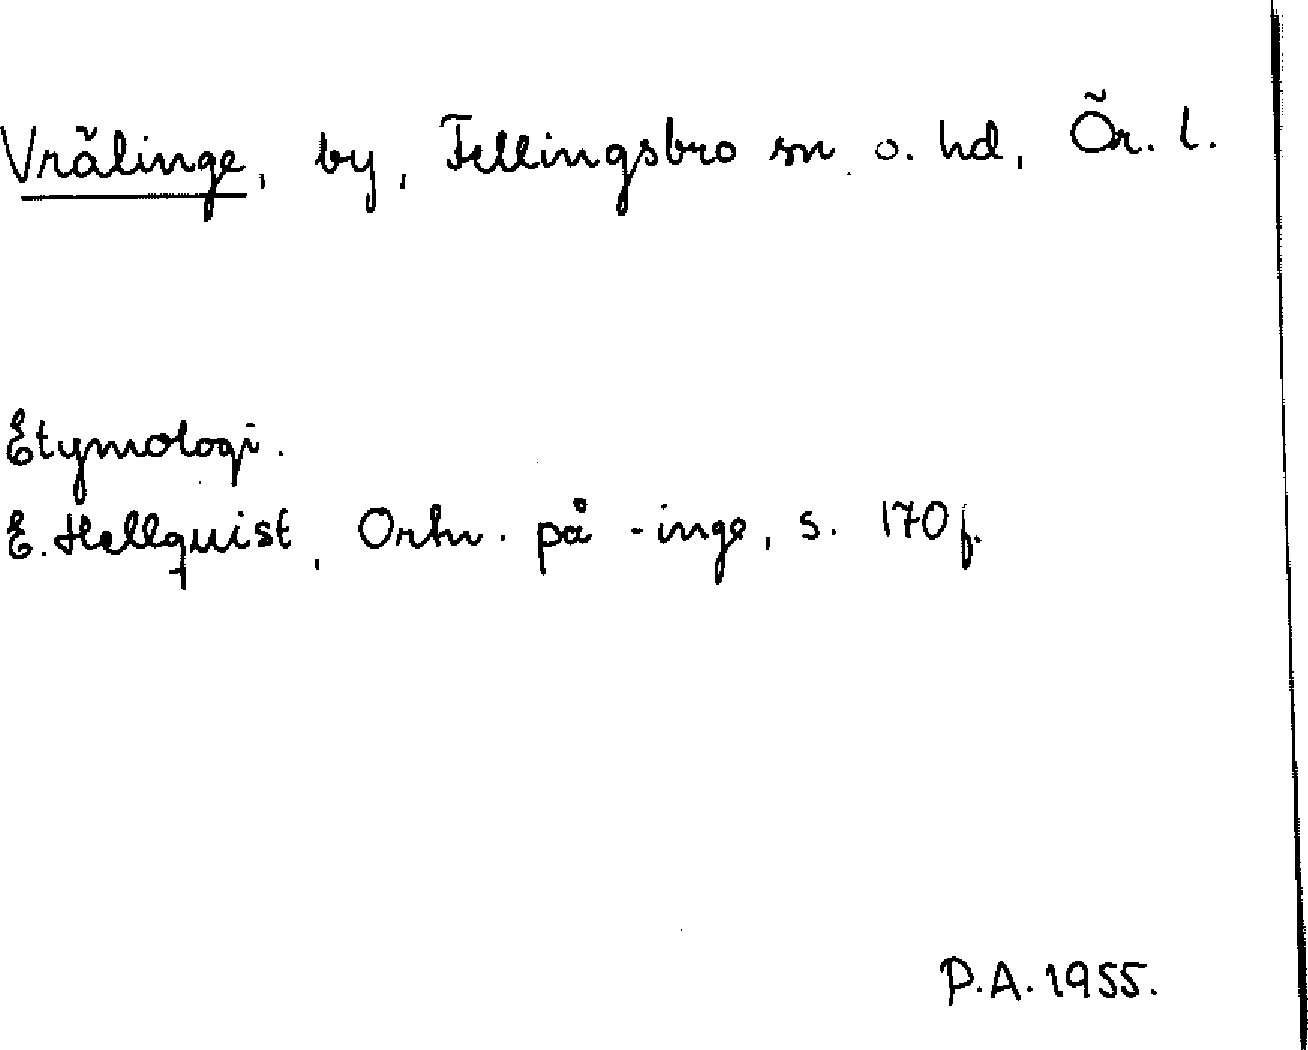 Vrälinge, by, Fellingsbro sn o. hd, Ör. l.
Etymologi.
E. Hellquist, Ortn. på -inge, s. 170 f.
P.A. 1955.